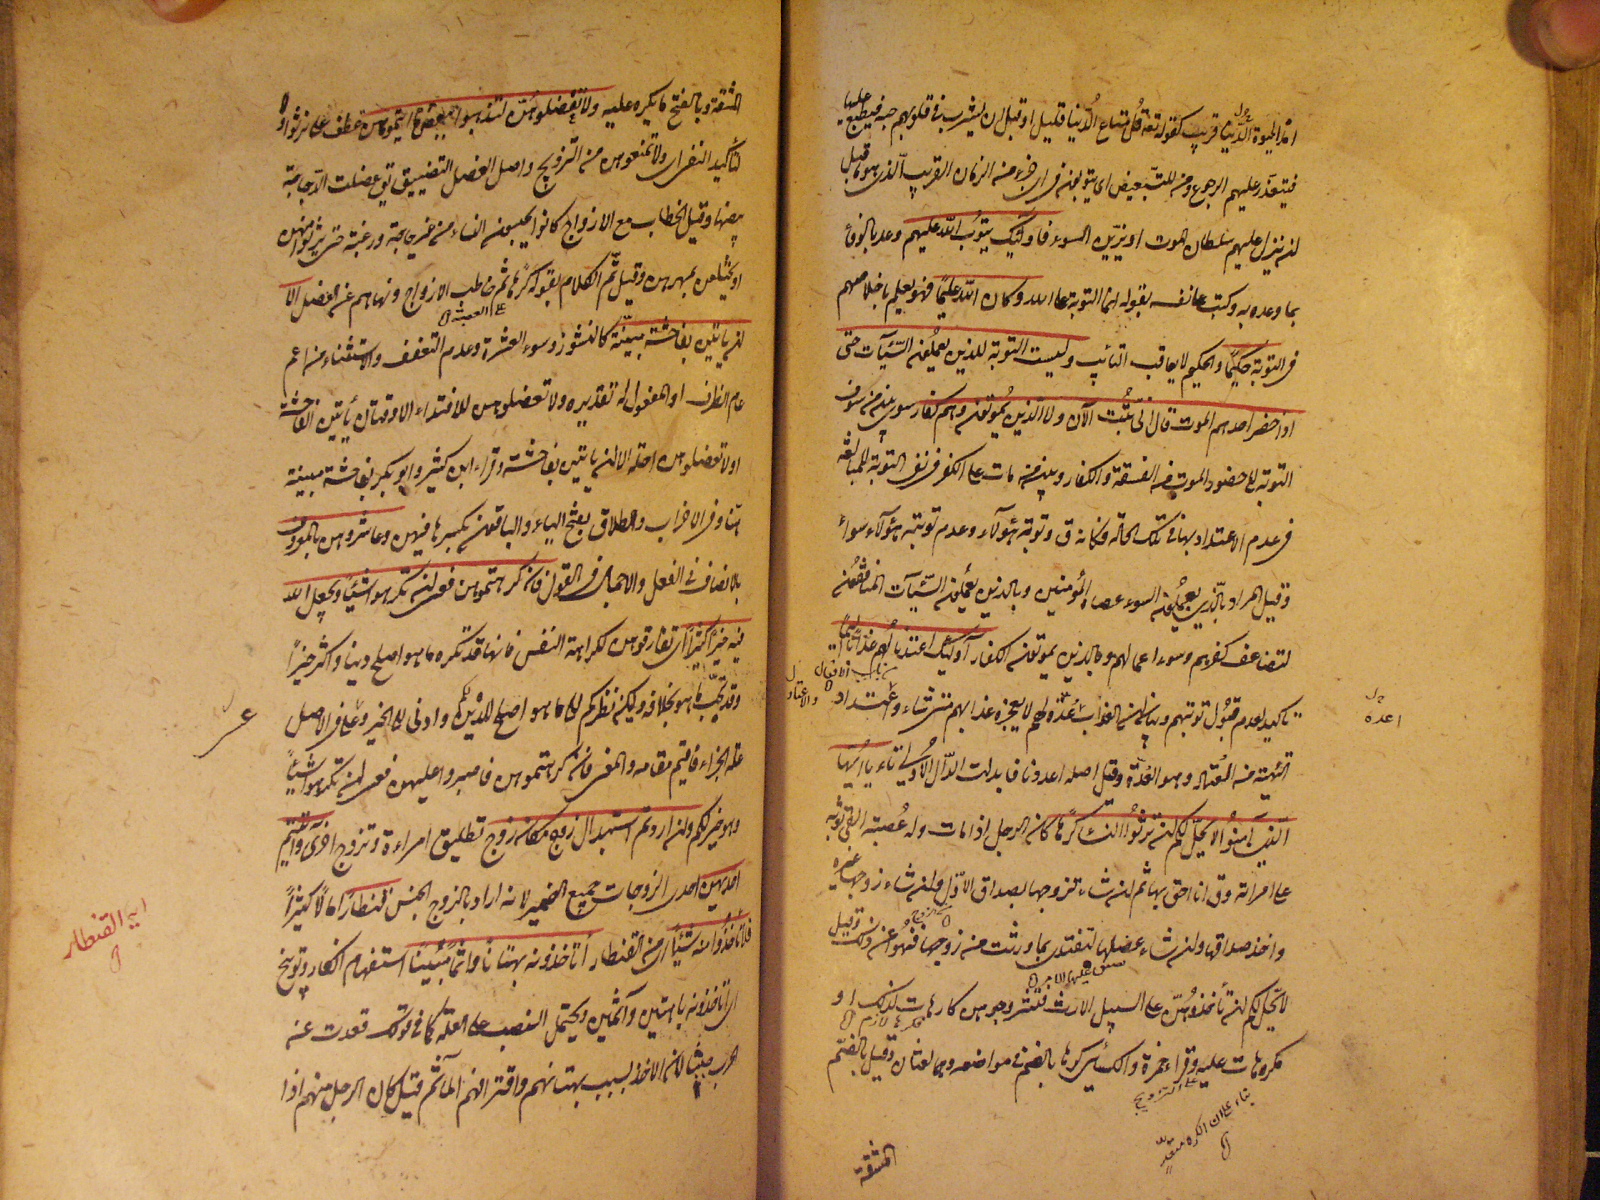 امد الحيوة الدنيا قريب كقوله تعالى قل متاع الدنيا قليل او قبل ان يشرب في قلوبهم حبه فيطبع عليها
فيتعذر عليهم الرجوع ومن للتبعيض اى يتوبون في اى جزء من الزمان القريب الذى هو ما قبل
ان ينزل عليهم سلطان الموت او يزين السوء فاولئك يتوب الله عليهم وعد بالوفاء
بما وعد به وكتب على نفسه بقوله انما التوبة على الله وكان الله عليما فهو يعلم باخلاصهم
فى التوبة حكيما والحكيم لا يعاقب التائب وليست التوبة للذين يعملون السيآت حتى
اذا حضر احدهم الموت قال انى تبت الآن ولا الذين يموتون وهم كفار سوى بين من سوف
التوبة الى حضور الموت من الفسقة والكفار وبين من مات على الكفر فى نفى التوبة للمبالغة
فى عدم الاعتداد بها فى تلك الحالة وكانه ق وتوبة هؤلاء وعدم توبة هؤلاء سواء
وقيل المراد بالذين يعملون السوء عصاة المؤمنين وبالذين يعملون السيآت المنافقون
لتضاعف كفرهم وسوء اعمالهم وبالذين يموتون الكفار اولئك اعتدنا لهم عذابا اليما
تاكيد لعدم قبول توبتهم وبيان ان العذاب اعده لهم لا يعجزه عذابهم متى شاء والاعتداد
التهيئة من العتاد وهو العدة وقيل اصله اعددنا فابدلت الدال الاولى تاء يا ايها
الذين آمنوا لا يحل لكم ان ترثوا النساء كرها كان الرجل اذا مات وله عصبة القى ثوبه
على امراته وق انا احق بها ثم ان شاء تزوجها بصداق الاول وان شاء زوجها غيره
واخذ صداقها وان شاء عضلها لتفتدى بما ورثت من زوجها فنهوا عن ذلك وقيل
لا يحل لكم ان تأخذوهن على السبيل الارث فتتزوجوهن كارهات لذلك او
مكرهات عليه وقراء حمزة والكسائى كرها بالضم فى مواضعه وهما لغتان وقيل بالضم
المشقة
اعده
بناء على ان الكره متعد
المشقة وبالفتح ما يكره عليه ولا تعضلوهن لتذهبوا ببعض ما آتيتموهن عطف على ان ترثوا ولا
لتأكيد النفى اى ولا تمنعوهن من التزويج واصل العضل التضييق يق عضلت الدجاجة
ببيضها وقيل الخطاب مع الازواج كانوا يحبسون النساء من غير حاجة ورغبة حتى يرثوا منهن
او يختلعن بمهورهن وقيل تم الكلام بقوله كرها ثم خاطب الازواج ونهاهم عن العضل الا
ان ياتين بفاحشة مبينة كالنشوز وسوء العشرة وعدم التعفف والاستثناء من اعم
عام الظرف او المفعول له تقديره ولا تعضلوهن للافتداء الا وقت ان يأتين بفاحشة
او لا تعضلوهن لعلة الا ان ياتين بفاحشة وقراء ابن كثير وابو بكر بفاحشة مبينة
هنا وفى الاحزاب والطلاق بفتح الياء والباقون بكسرها فيهن وعاشروهن بالمعروف
بالانصاف فى الفعل والاجمال فى القول فان كرهتموهن فعسى ان تكرهوا شيئا ويجعل الله
فيه خيرا كثيرا اى فلا تفارقوهن لكراهة النفس فانها قد تكره ما هو اصلح دينا واكثر خيرا
وقد تحب ما هو بخلافه وليكن نظركم الى ما هو اصلح للدين وادنى الى الخير وعسى فى الاصل
علة الجزاء فاقيم مقامه والمعنى فان كرهتموهن فاصبروا عليهن فعسى ان تكرهوا شيئا
وهو خير لكم وان اردتم استبدال زوج مكان زوج تطليق امراءة وتزوج اخرى وآتيتم
احديهن احدى الزوجات جميع الضمير لانه اراد بالزوج الجنس قنطارا مالا كثيرا
فلا تأخذوا منه شيئا اى من القنطار أتأخذونه بهتانا واثما مبينا استفهام انكار وتوبيخ
اى تاخذونه باهتين وآثمين ويحتمل النصب على العلة كما فى قولك قعدت عن
الحرب جبنا لان الاخذ بسبب بهتانهم واقترافهم المآثم قيل كان الرجل منهم اذا
اية القنطار